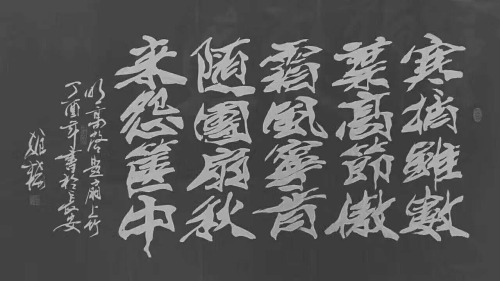 寒梢雖數
葉高節傲
霜風寧肯
随團扇秋
来怨篋中
明高啓畫扇上竹
丁酉年書於長安